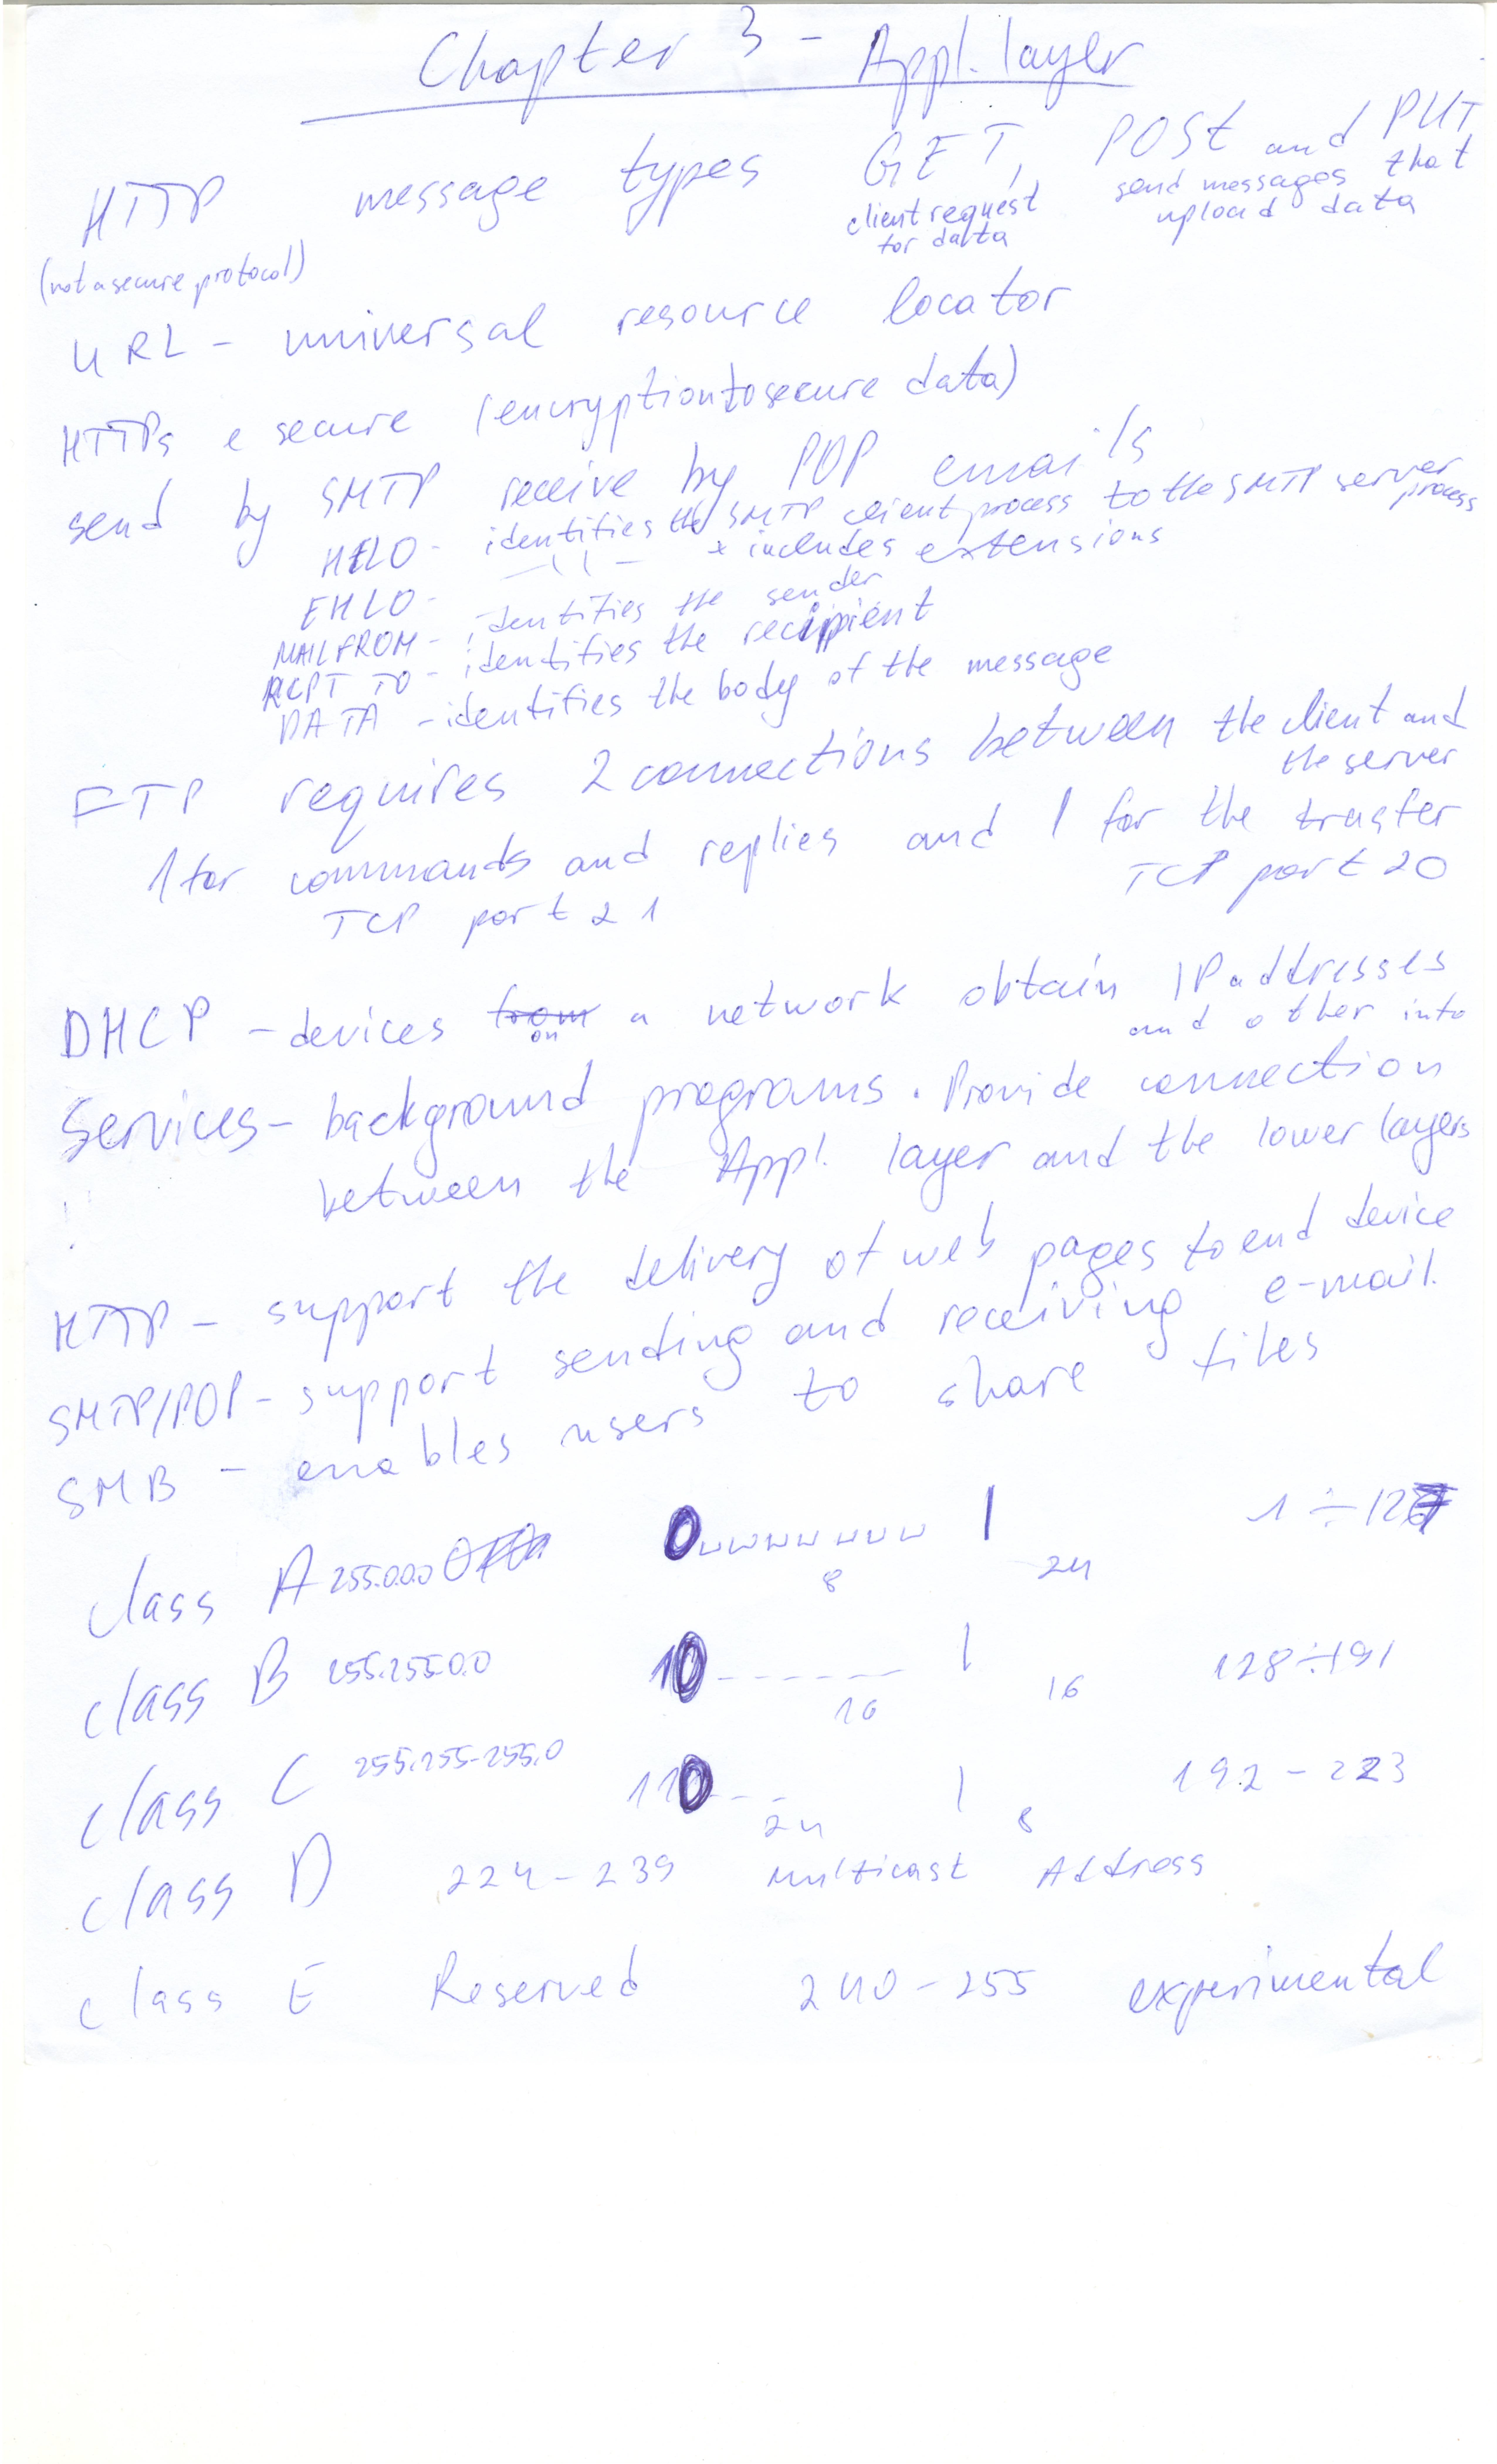 Chapter 3 - Appl. layer
HTTP message types GET, POST and PUT
(not a secure protocol) client request for data send messages that upload data
URL - universal resource locator
HTTPs e secure (encryption to secure data)
send by SMTP receive by POP emails
HELO - identifies the SMTP client process to the SMTP server process
EHLO - —||— + includes extensions
MAIL FROM - identifies the sender
RCPT TO - identifies the recippient
DATA - identifies the body of the message
FTP requires 2 connections between the client and
the server
1 for commands and replies and 1 for the trasfer
TCP port 21 TCP port 20
DHCP - devices on a network obtain IP addresses
and other info
Services - background programs. Provide connection
between the Appl. layer and the lower layers
HTTP - support the delivery of web pages to end device
SMTP/POP - support sending and receiving e-mail.
SMB - enables users to share files
class A 255.0.0.0 0 | 1 ÷ 127
8 24
class B 255.255.0.0 10 ------ | 128 ÷ 191
16 16
class C 255.255.255.0 110 --- | 192 - 223
24 8
class D 224 - 239 Multicast Address
class E Reserved 240 - 255 experimental